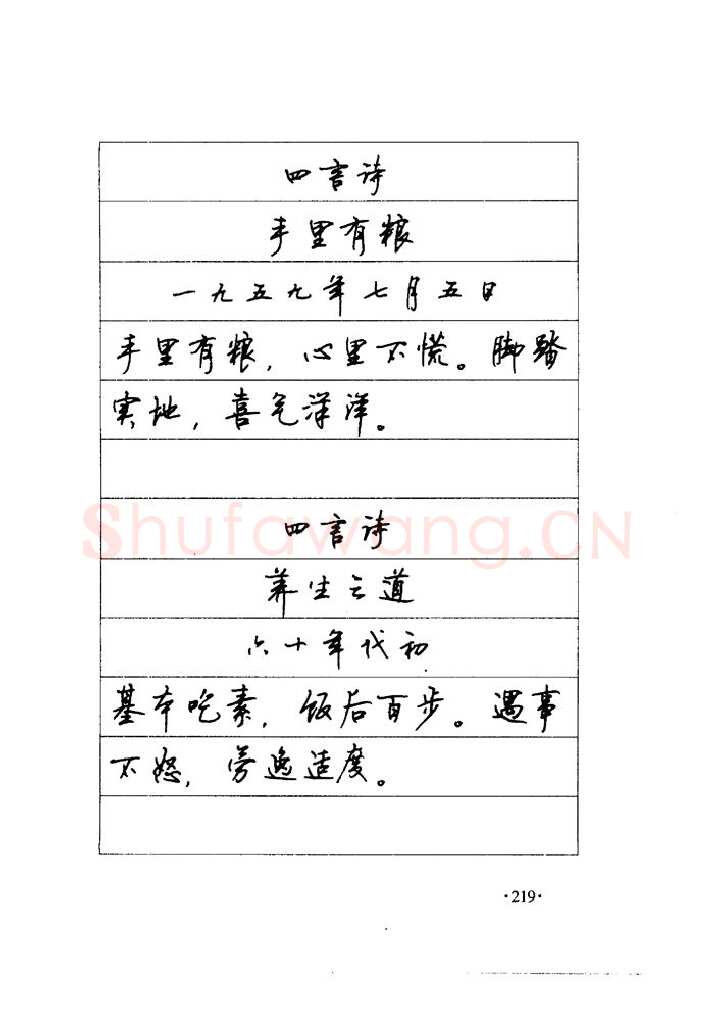 四言诗
手里有粮
一九五九年七月五日
手里有粮，心里不慌。脚踏
实地，喜气洋洋。
Shufawang.CN
四言诗
养生之道
六十年代初
基本吃素，饭后百步。遇事
不怒，劳逸适度。
·219·